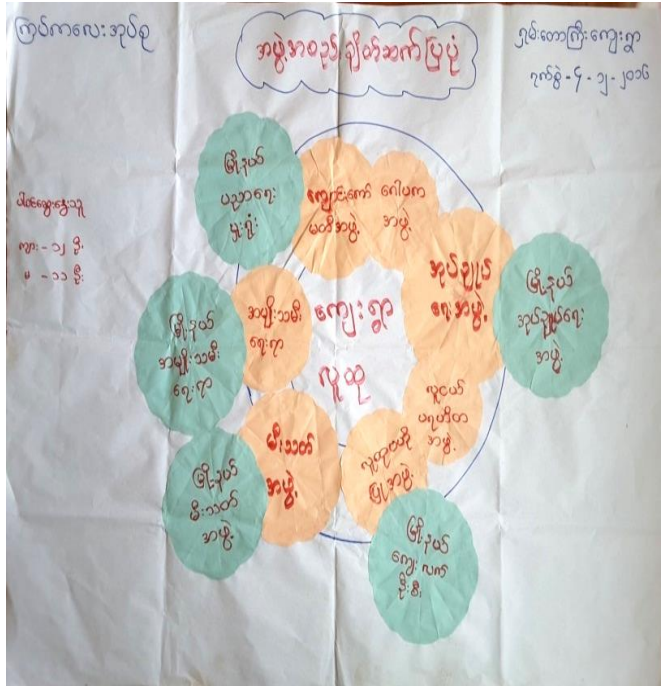 ကြပ်ကလေးအုပ်စု
အဖွဲ့အစည်းချိတ်ဆက်ပြပုံ
ရှမ်းတောကြီးကျေးရွာ
ရက်စွဲ - ၄-၂-၂၀၁၆
ပါဝင်ဆွေးနွေးသူ
ကျား - ၁၂ ဦး
မ - ၁၁ ဦး
မြို့နယ်
ပညာရေး
မှူးရုံး
ကျောင်းကော်
မတီအဖွဲ့
ဂေါပက
အဖွဲ့
အုပ်ချုပ်
ရေးအဖွဲ့
မြို့နယ်
အုပ်ချုပ်ရေး
အဖွဲ့
အမျိုးသမီး
ရေးရာ
မြို့နယ်
အမျိုးသမီး
ရေးရာ
ကျေးရွာ
လူထု
လူငယ်
ပရဟိတ
အဖွဲ့
မီးသတ်
အဖွဲ့
မြို့နယ်
မီးသတ်
အဖွဲ့
လူထုဗဟို
ပြုအဖွဲ့
မြို့နယ်
ကျေးလက်
ဦးစီး